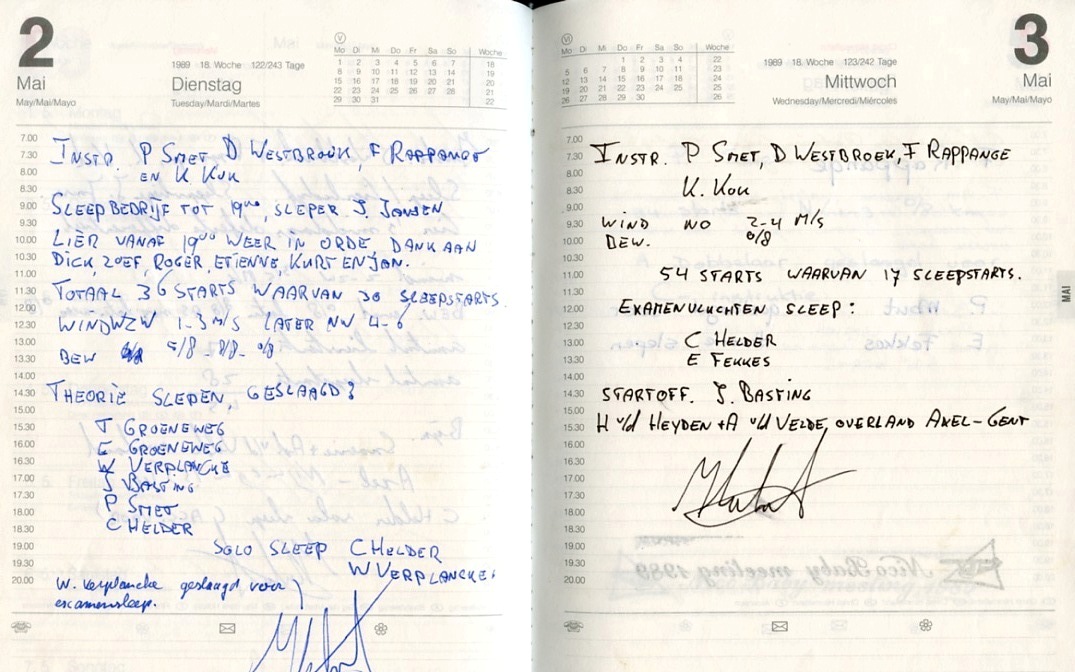 2
Mai
May/Mai/Mayo
1989 18. Woche 122/243 Tage
Dienstag
Tuesday/Mardi/Martes
V
Mo Di Mi Do Fr Sa So Woche
1 2 3 4 5 6 7 18
8 9 10 11 12 13 14 19
15 16 17 18 19 20 21 20
22 23 24 25 26 27 28 21
29 30 31 22
7.00
7.30 INSTR. P SMET, D WESTBROEK, F RAPPANGE
8.00 EN K KOK
8.30
9.00 SLEEPBEDRIJF TOT 19⁰⁰, SLEPER J. JANSEN
9.30
10.00 LIER VANAF 19⁰⁰ WEER IN ORDE, DANK AAN
10.30 DICK, ZOEF, ROGER, ETIENNE, KURT EN JAN.
11.00
11.30 TOTAAL 36 STARTS WAARVAN 30 SLEEPSTARTS.
12.00
12.30 WIND WZW 1-3 M/S LATER NW 4-6
13.00
13.30 BEW 5/8 - 8/8 - 0/8
14.00
14.30 THEORIE SLEPEN, GESLAAGD:
15.00
15.30 T GROENEWEG
16.00 E GROENEWEG
16.30 W VERPLANCKE
17.00 J BASTING
17.30 P SMET
18.00 C HELDER
18.30
19.00 SOLO SLEEP C HELDER
19.30 W VERPLANCKE
20.00 W. Verplancke geslaagd voor
examensleep.
3
Mai
May/Mai/Mayo
1989 18. Woche 123/242 Tage
Mittwoch
Wednesday/Mercredi/Miércoles
VI
Mo Di Mi Do Fr Sa So Woche
1 2 3 4 22
5 6 7 8 9 10 11 23
12 13 14 15 16 17 18 24
19 20 21 22 23 24 25 25
26 27 28 29 30 26
7.00
7.30 INSTR. P SMET, D WESTBROEK, F RAPPANGE
8.00
8.30 K. KOK
9.00
9.30 WIND NO 2-4 M/S
10.00 BEW. 0/8
10.30
11.00 54 STARTS WAARVAN 17 SLEEPSTARTS.
11.30
12.00 EXAMENVLUCHTEN SLEEP:
12.30
13.00 C HELDER
13.30 E FEKKES
14.00
14.30 STARTOFF. J. BASTING
15.00
15.30 H v/d HEYDEN + A v/d VELDE, OVERLAND AXEL-GENT
16.00
16.30
17.00
17.30
18.00
18.30
19.00
19.30
20.00
MAI